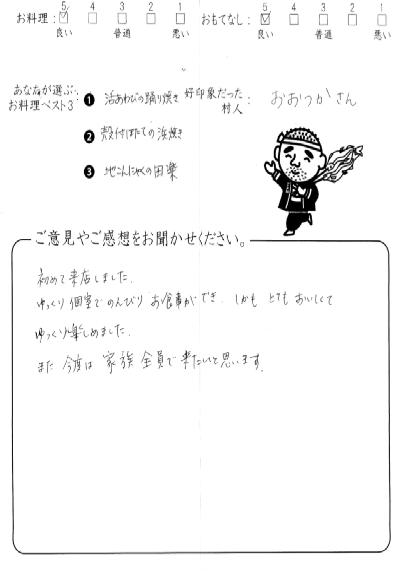 お料理： 5 4 3 2 1 おもてなし： 5 4 3 2 1
良い 普通 悪い 良い 普通 悪い
あなたが選ぶ：
お料理ベスト3
❶ 活あわびの踊り焼き
❷ 殻付ほたての浜焼き
❸ 地こんにゃくの田楽
好印象だった
村人：
おおつかさん
ご意見やご感想をお聞かせください。
初めて来店しました。
ゆっくり個室でのんびりお食事ができ、しかもとてもおいしくて
ゆっくり楽しめました。
また今度は家族全員で来たいと思います。